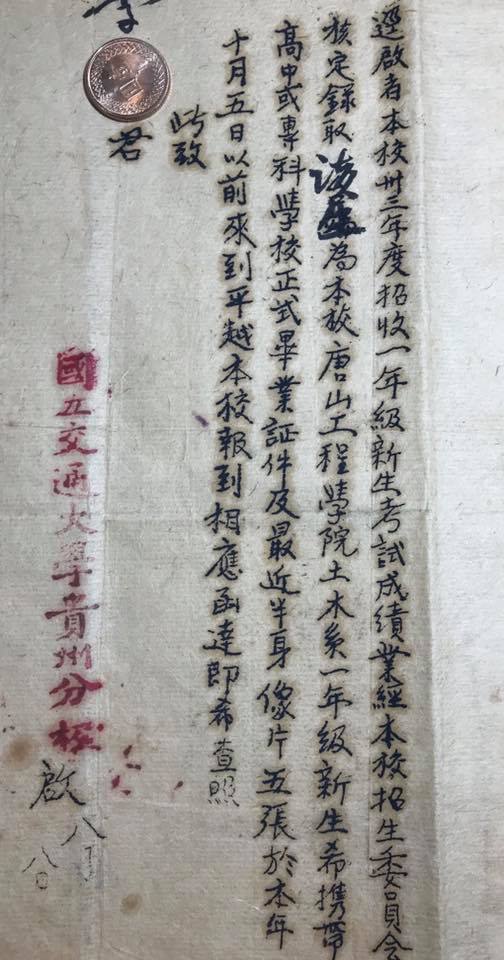 逕啟者本校卅三年度招收一年級新生考試成績業經本校招生委員會
核定錄取 為本校唐山工程學院土木系一年級新生希携帶
高中或專科學校正式畢業証件及最近半身像片五張於本年
十月五日以前來到平越本校報到相應函達即希查照
此致
君
國立交通大學貴州分校
啟 八